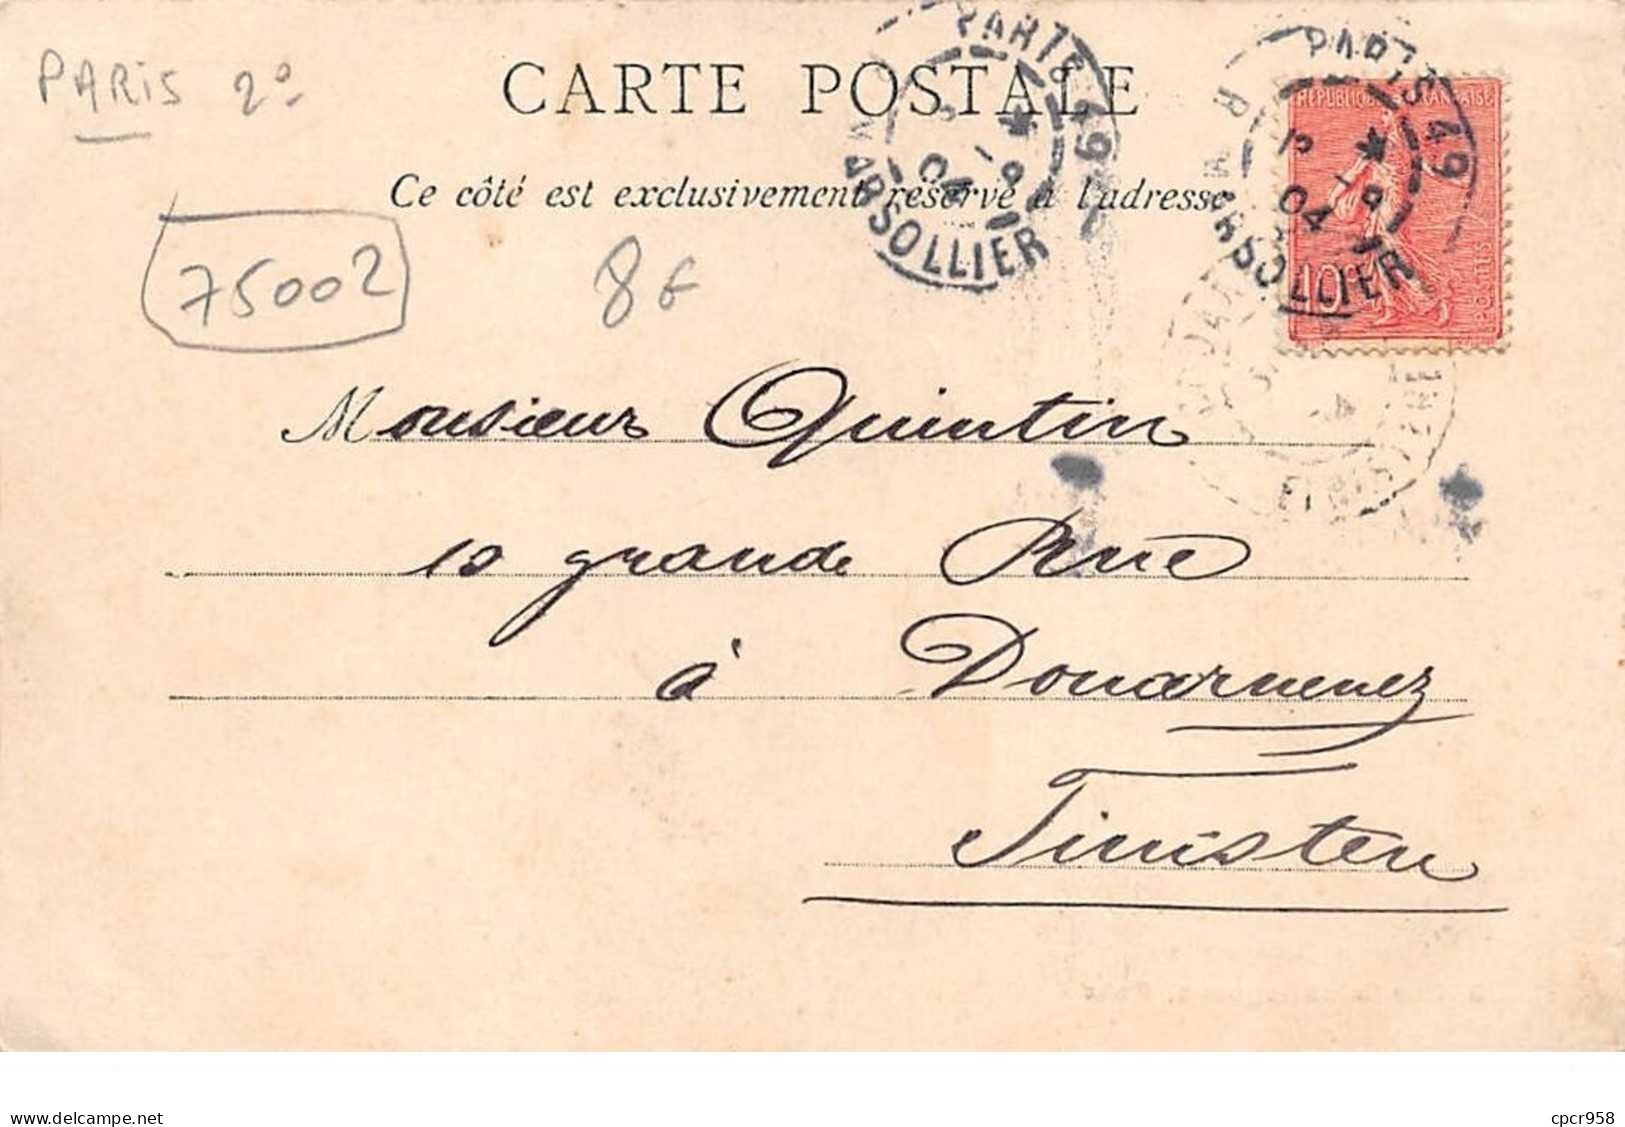 PARIS 2e
CARTE POSTALE
Ce côté est exclusivement réservé à l'adresse
75002
8€
PARIS 49
R. MARSOLLIER
9 04
PARIS 49
R. MARSOLLIER
9 04
REPUBLIQUE FRANÇAISE
10c
POSTES
FINISTERE
Monsieur Quintin
10 grande Rue
à Douarnenez
Finistère
delcampe.net
cpcr958